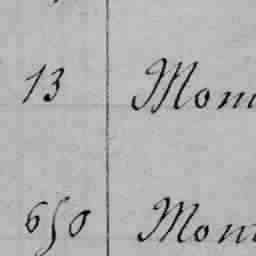 13 Mom
650 Mom